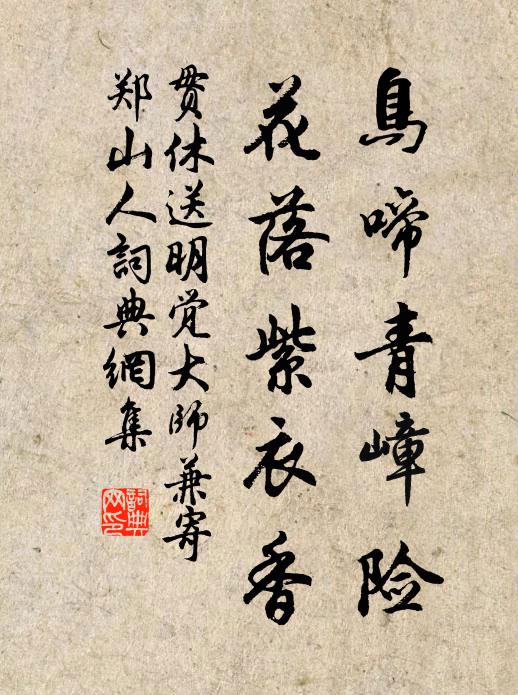 鳥啼青嶂险
花落紫衣香
贯休送明觉大师兼寄
郑山人詞典網集
詞典
网印